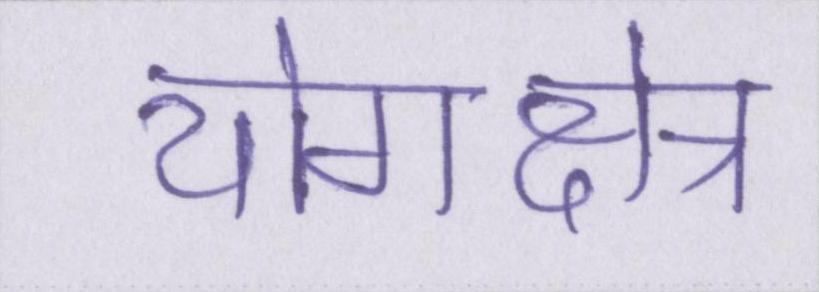 योग क्षेत्र